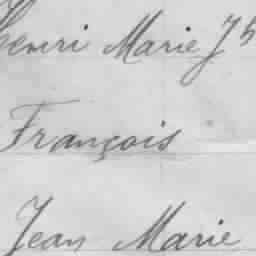 Henri Marie Jh
François
Jean Marie